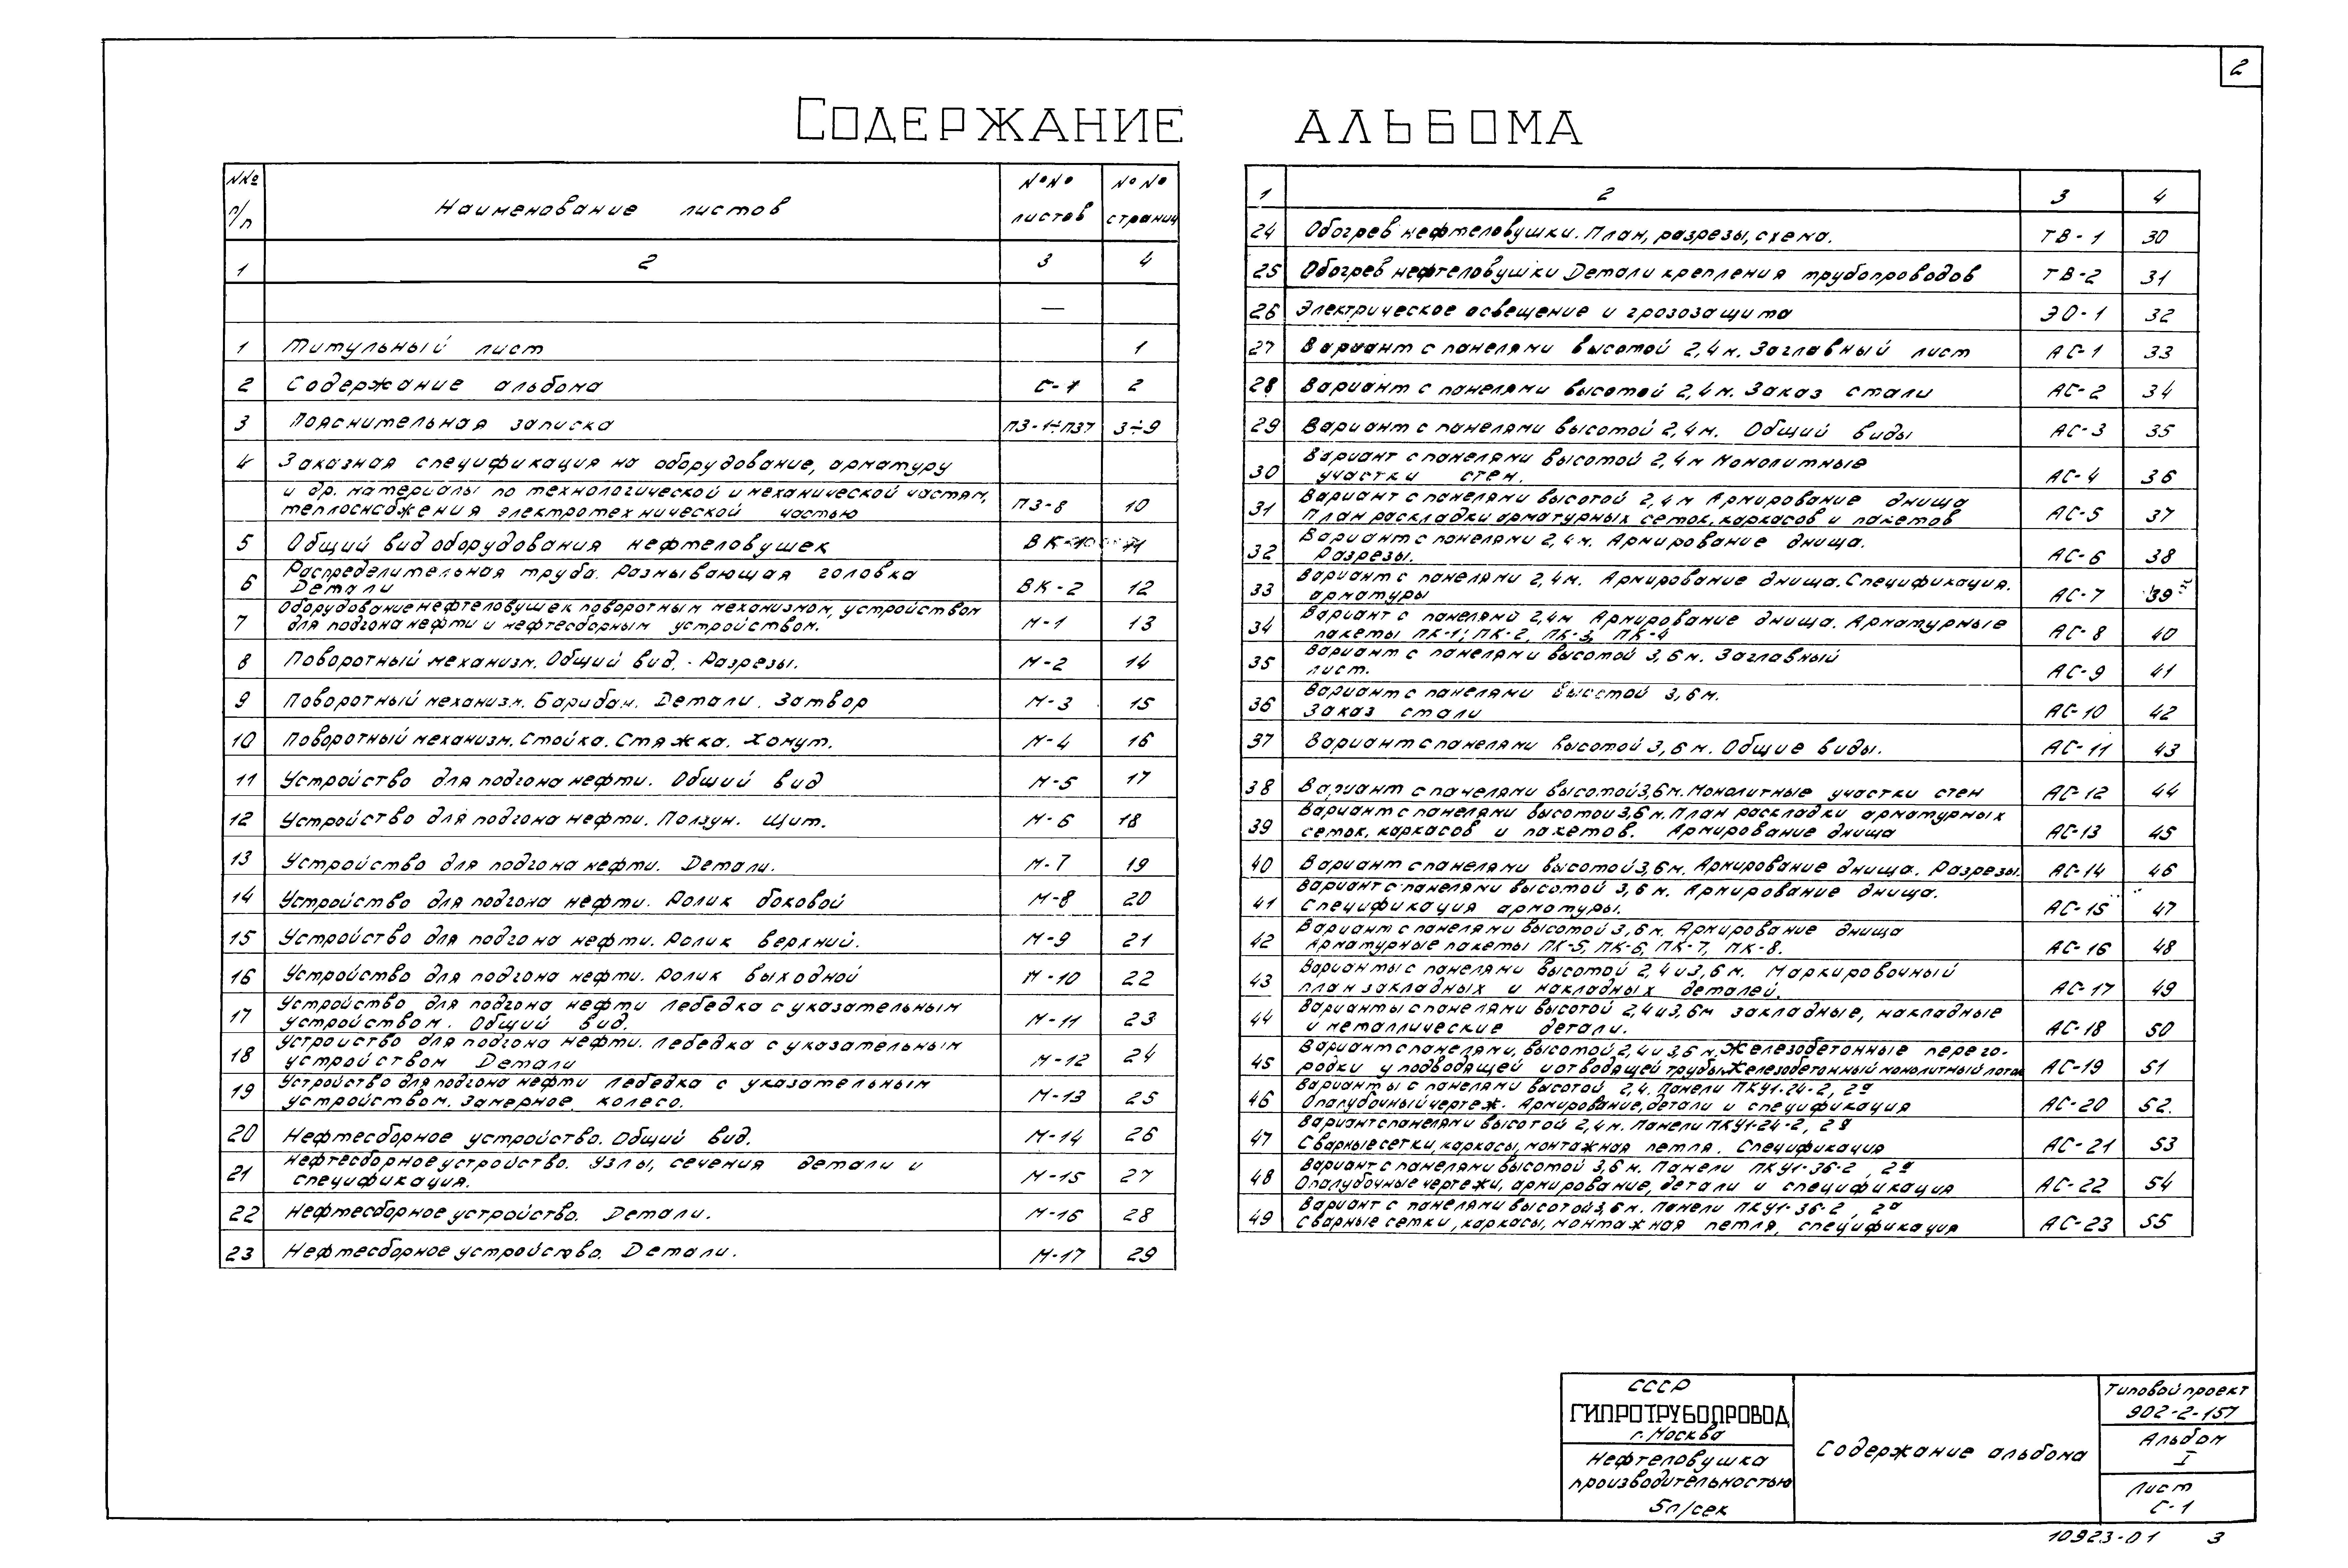 2
СОДЕРЖАНИЕ АЛЬБОМА
№№ п/п Наименование листов №№ листов №№ страниц
1 2 3 4
—
1 Титульный лист 1
2 Содержание альбома С-1 2
3 Пояснительная записка ПЗ-1÷ПЗ7 3÷9
4 Заказная спецификация на оборудование, арматуру
и др. материалы по технологической и механической частям,
теплоснабжения электротехнической частью ПЗ-8 10
5 Общий вид оборудования нефтеловушек ВК-1 11
6 Распределительная труба. Размывающая головка
Детали ВК-2 12
7 Оборудование нефтеловушек поворотным механизмом, устройством
для подгона нефти и нефтесборным устройством. М-1 13
8 Поворотный механизм. Общий вид. Разрезы. М-2 14
9 Поворотный механизм. Барабан. Детали. Затвор М-3 15
10 Поворотный механизм. Стойка. Стяжка. Хомут. М-4 16
11 Устройство для подгона нефти. Общий вид М-5 17
12 Устройство для подгона нефти. Ползун. Щит. М-6 18
13 Устройство для подгона нефти. Детали. М-7 19
14 Устройство для подгона нефти. Ролик боковой М-8 20
15 Устройство для подгона нефти. Ролик верхний. М-9 21
16 Устройство для подгона нефти. Ролик выходной М-10 22
17 Устройство для подгона нефти Лебедка с указательным
устройством. Общий вид. М-11 23
18 Устройство для подгона нефти. Лебедка с указательным
устройством Детали М-12 24
19 Устройство для подгона нефти Лебедка с указательным
устройством. Замерное колесо. М-13 25
20 Нефтесборное устройство. Общий вид. М-14 26
21 Нефтесборное устройство. Узлы, сечения детали и
спецификация. М-15 27
22 Нефтесборное устройство. Детали. М-16 28
23 Нефтесборное устройство. Детали. М-17 29
1 2 3 4
24 Обогрев нефтеловушки. План, разрезы, схема. ТВ-1 30
25 Обогрев нефтеловушки Детали крепления трубопроводов ТВ-2 31
26 Электрическое освещение и грозозащита ЭО-1 32
27 Вариант с панелями высотой 2,4 м. Заглавный лист АС-1 33
28 Вариант с панелями высотой 2,4 м. Заказ стали АС-2 34
29 Вариант с панелями высотой 2,4 м. Общий виды АС-3 35
30 Вариант с панелями высотой 2,4 м Монолитные
участки стен. АС-4 36
31 Вариант с панелями высотой 2,4 м Армирование днища
План раскладки арматурных сеток, каркасов и пакетов АС-5 37
32 Вариант с панелями 2,4 м. Армирование днища.
Разрезы. АС-6 38
33 Вариант с панелями 2,4 м. Армирование днища. Спецификация.
арматуры АС-7 39
34 Вариант с панелями 2,4 м Армирование днища. Арматурные
пакеты ПК-1; ПК-2, ПК-3, ПК-4 АС-8 40
35 Вариант с панелями высотой 3,6 м. Заглавный
лист. АС-9 41
36 Вариант с панелями высотой 3,6 м.
Заказ стали АС-10 42
37 Вариант с панелями высотой 3,6 м. Общие виды. АС-11 43
38 Вариант с панелями высотой 3,6 м. Монолитные участки стен АС-12 44
39 Вариант с панелями высотой 3,6 м. План раскладки арматурных
сеток, каркасов и пакетов. Армирование днища АС-13 45
40 Вариант с панелями высотой 3,6 м. Армирование днища. Разрезы. АС-14 46
41 Вариант с панелями высотой 3,6 м. Армирование днища.
Спецификация арматуры. АС-15 47
42 Вариант с панелями высотой 3,6 м. Армирование днища
Арматурные пакеты ПК-5, ПК-6, ПК-7, ПК-8. АС-16 48
43 Варианты с панелями высотой 2,4 и 3,6 м. Маркировочный
план закладных и накладных деталей. АС-17 49
44 Варианты с панелями высотой 2,4 и 3,6 м закладные, накладные
и металлические детали. АС-18 50
45 Вариант с панелями, высотой 2,4 и 3,6 м. Железобетонные перего-
родки у подводящей и отводящей трубы. Железобетонный монолитный лоток АС-19 51
46 Варианты с панелями высотой 2,4. Панели ПКУ1-24-2, 2а
Опалубочный чертеж. Армирование, детали и спецификация АС-20 52.
47 Вариант с панелями высотой 2,4 м. Панели ПКУ1-24-2, 2а
Сварные сетки, каркасы, монтажная петля. Спецификация АС-21 53
48 Вариант с панелями высотой 3,6 м. Панели ПКУ1-36-2, 2а
Опалубочные чертежи, армирование, детали и спецификация АС-22 54
49 Вариант с панелями высотой 3,6 м. Панели ПКУ1-36-2, 2а
Сварные сетки, каркасы, монтажная петля, спецификация АС-23 55
СССР
ГИПРОТРУБОПРОВОД
г. Москва
Нефтеловушка
производительностью
5л/сек
Содержание альбома
Типовой проект
902-2-157
Альбом
I
Лист
С-1
10923-01 3